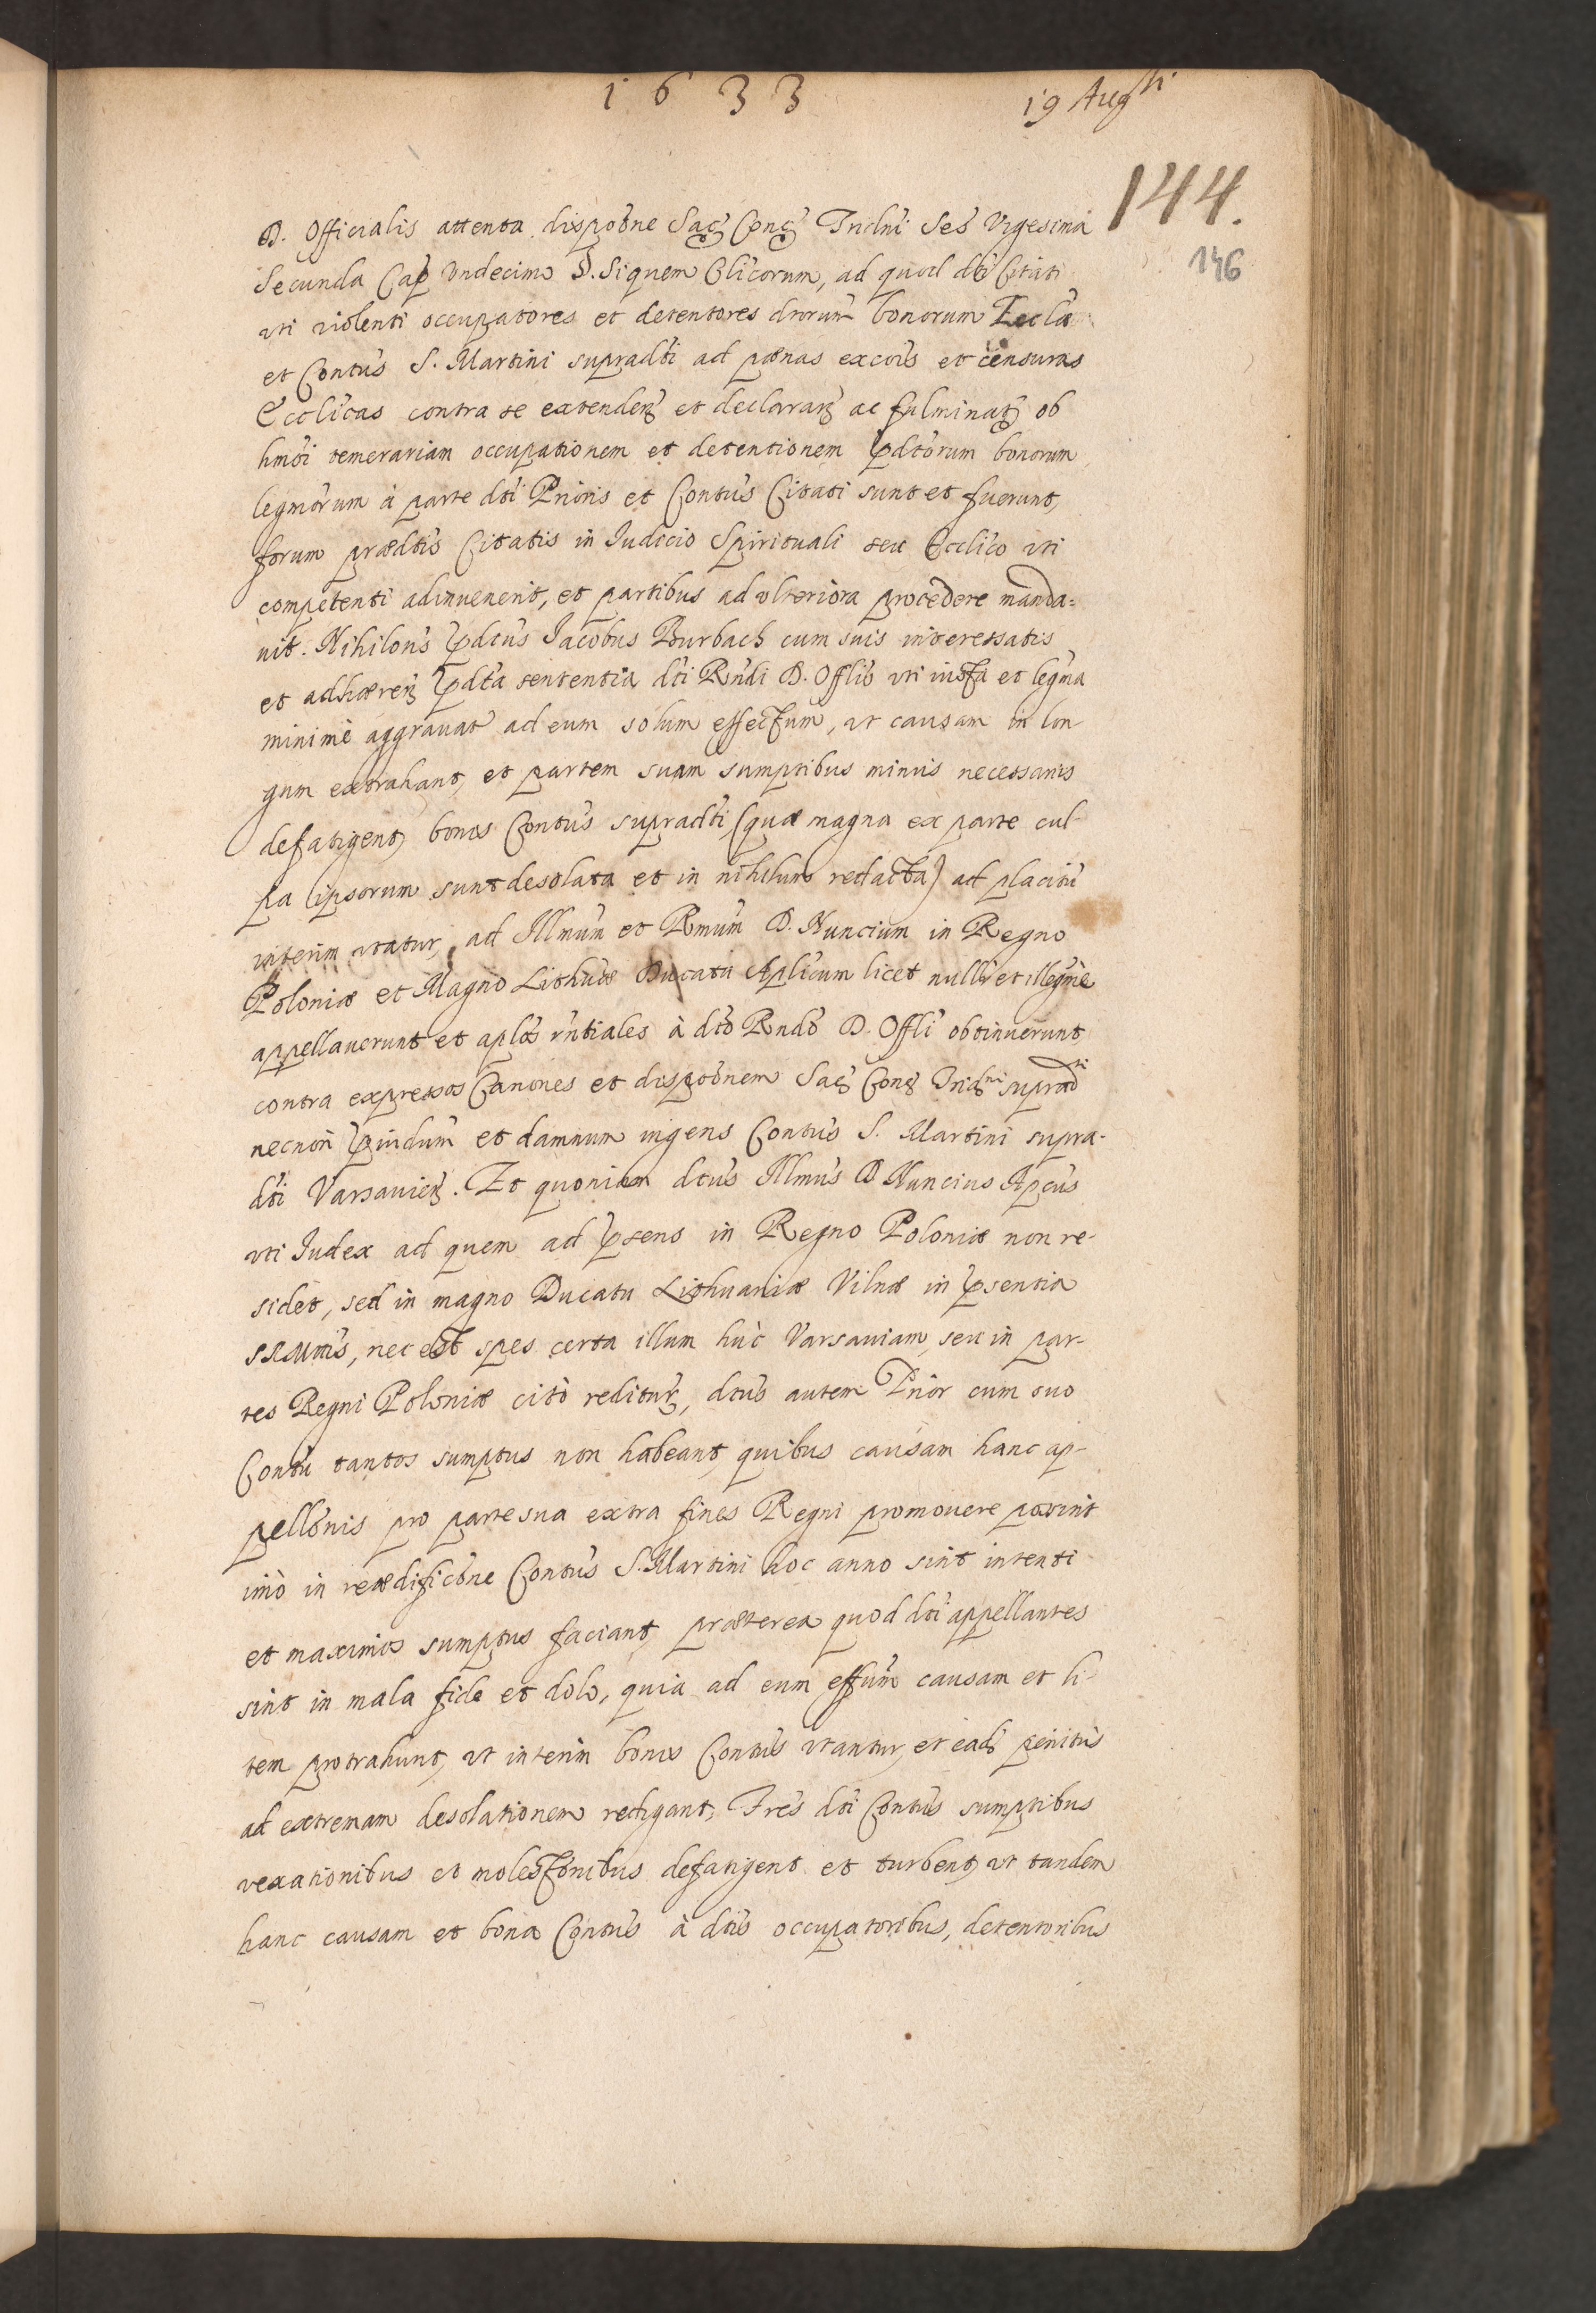 1633
19 Augti
144.
146
D. Officialis attenta dispõne Sac Conc Tridni Ses Vigesima
Secunda Cap Vndecimo §. Siquem Clicorum, ad quod dti Citati
vti violenti occupatores et detentores dtorum bonorum Eccla
et Contus S. Martini supradti ad pænas excõis et censuras
Ecclicas contra se extenden et declarari ac fulminati ob
hmõi temerariam occupationem et detentionem pdtorum bonorum
legmorum à parte dti Prioris et Contus Citati sunt et fuerunt,
forum prædtis Citatis in Iudicio Spirituali seu Ecclico vti
competenti adinuenerit, et partibus ad vlteriora procedere manda=
uit. Nihilonus pdtus Iacobus Burbach cum suis interessatis
et adhæren pdta sententia dti Rndi D. Offlis vti iusta et legma
minimè aggrauat ad eum solum effectum, vt causam in lon
gum extrahant, et partem suam sumptibus minus necessariis
defatigent, bonis Contus supradti (quæ magna ex parte cul-
pa ipsorum sunt desolata et in nihilum redacta) ad placitu
interim vtatur, ad Illmum et Rmum D. Nuncium in Regno
Poloniæ et Magno Lithuæ Ducatu Aplicum licet nullr et illegmè
appellauerunt et aplos rntiales à dto Rndo D. Offli obtinuerunt
contra expressos Canones et dispõnem Sac Conc Tridni supradti
necnon piudum et damnum ingens Contus S. Martini supra-
dti Varsauien. Et quoniam dtus Illmus D Nuncius Apcus
vti Iudex ad quem ad psens in Regno Poloniæ non re-
sidet, sed in magno Ducatu Lithuaniæ Vilnæ in psentia
SRMtis, nec est spes certa illum huc Varsauiam, seu in par-
tes Regni Poloniæ citò reditur, dtus autem Prior cum suo
Contu tantos sumptus non habeant, quibus causam hanc ap-
pellonis pro parte sua extra fines Regni promouere possint
imò in reædificõne Contus S. Martini hoc anno sint intenti
et maximos sumptus faciant, præterea quod dti appellantes
sint in mala fide et dolo, quia ad eum effum causam et li-
tem protrahunt, vt interim bonis Contus vtantur, et eadē penitus
ad extremam desolationem redigant, Fres dti Contus sumptibus
vexationibus et molestõnibus defatigent et turbent, vt tandem
hanc causam et bona Contus à dtis occupatoribus, detentoribus